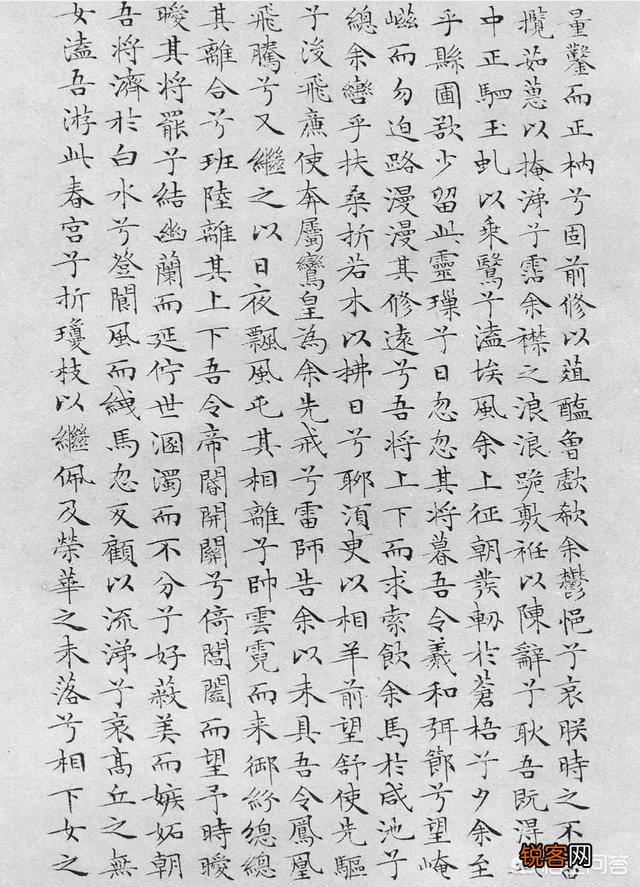 量鑿而正枘兮固前修以葅醢曾歔欷余鬱悒兮哀朕時之不
攬茹蕙以掩涕兮霑余襟之浪浪跪敷衽以陳辭兮耿吾既得
中正駟玉虬以乘鷖兮溘埃風余上征朝發軔於蒼梧兮夕余至
乎縣圃欲少留此靈瑣兮日忽忽其將暮吾令羲和弭節兮望崦
嵫而勿迫路漫漫其修遠兮吾將上下而求索飲余馬於咸池兮
總余轡乎扶桑折若木以拂日兮聊須臾以相羊前望舒使先驅
兮後飛廉使奔屬鸞皇為余先戒兮雷師告余以未具吾令鳳凰
飛騰兮又繼之以日夜飄風屯其相離兮帥雲霓而来御紛總總
其離合兮班陸離其上下吾令帝閽開關兮倚閶闔而望予時曖
曖其將罷兮結幽蘭而延佇世溷濁而不分兮好蔽美而嫉妬朝
吾將濟於白水兮登閬風而緤馬忽反顧以流涕兮哀高丘之無
女溘吾游此春宮兮折瓊枝以繼佩及榮華之未落兮相下女之
锐客网